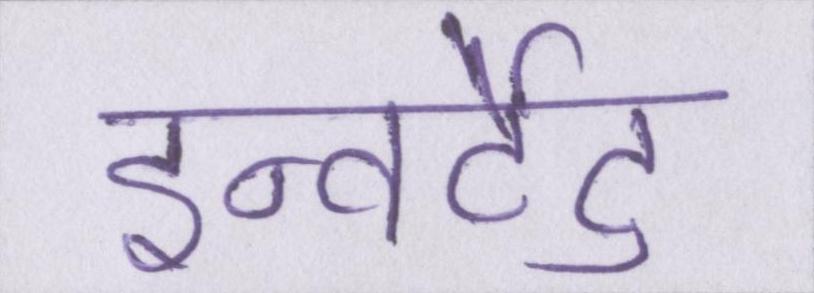 इन्वर्टेड